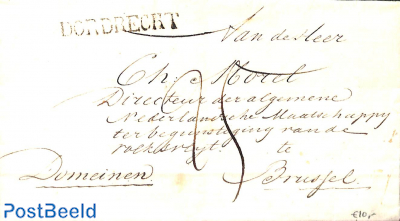 DORDRECHT
Van de Heer
Ch: Morel
Directeur der algemene
Nederlandsche Maatschappy
ter begunstiging van de
volksvlyt. te
Domeinen Brussel.
25
€10,-
PostBeeld